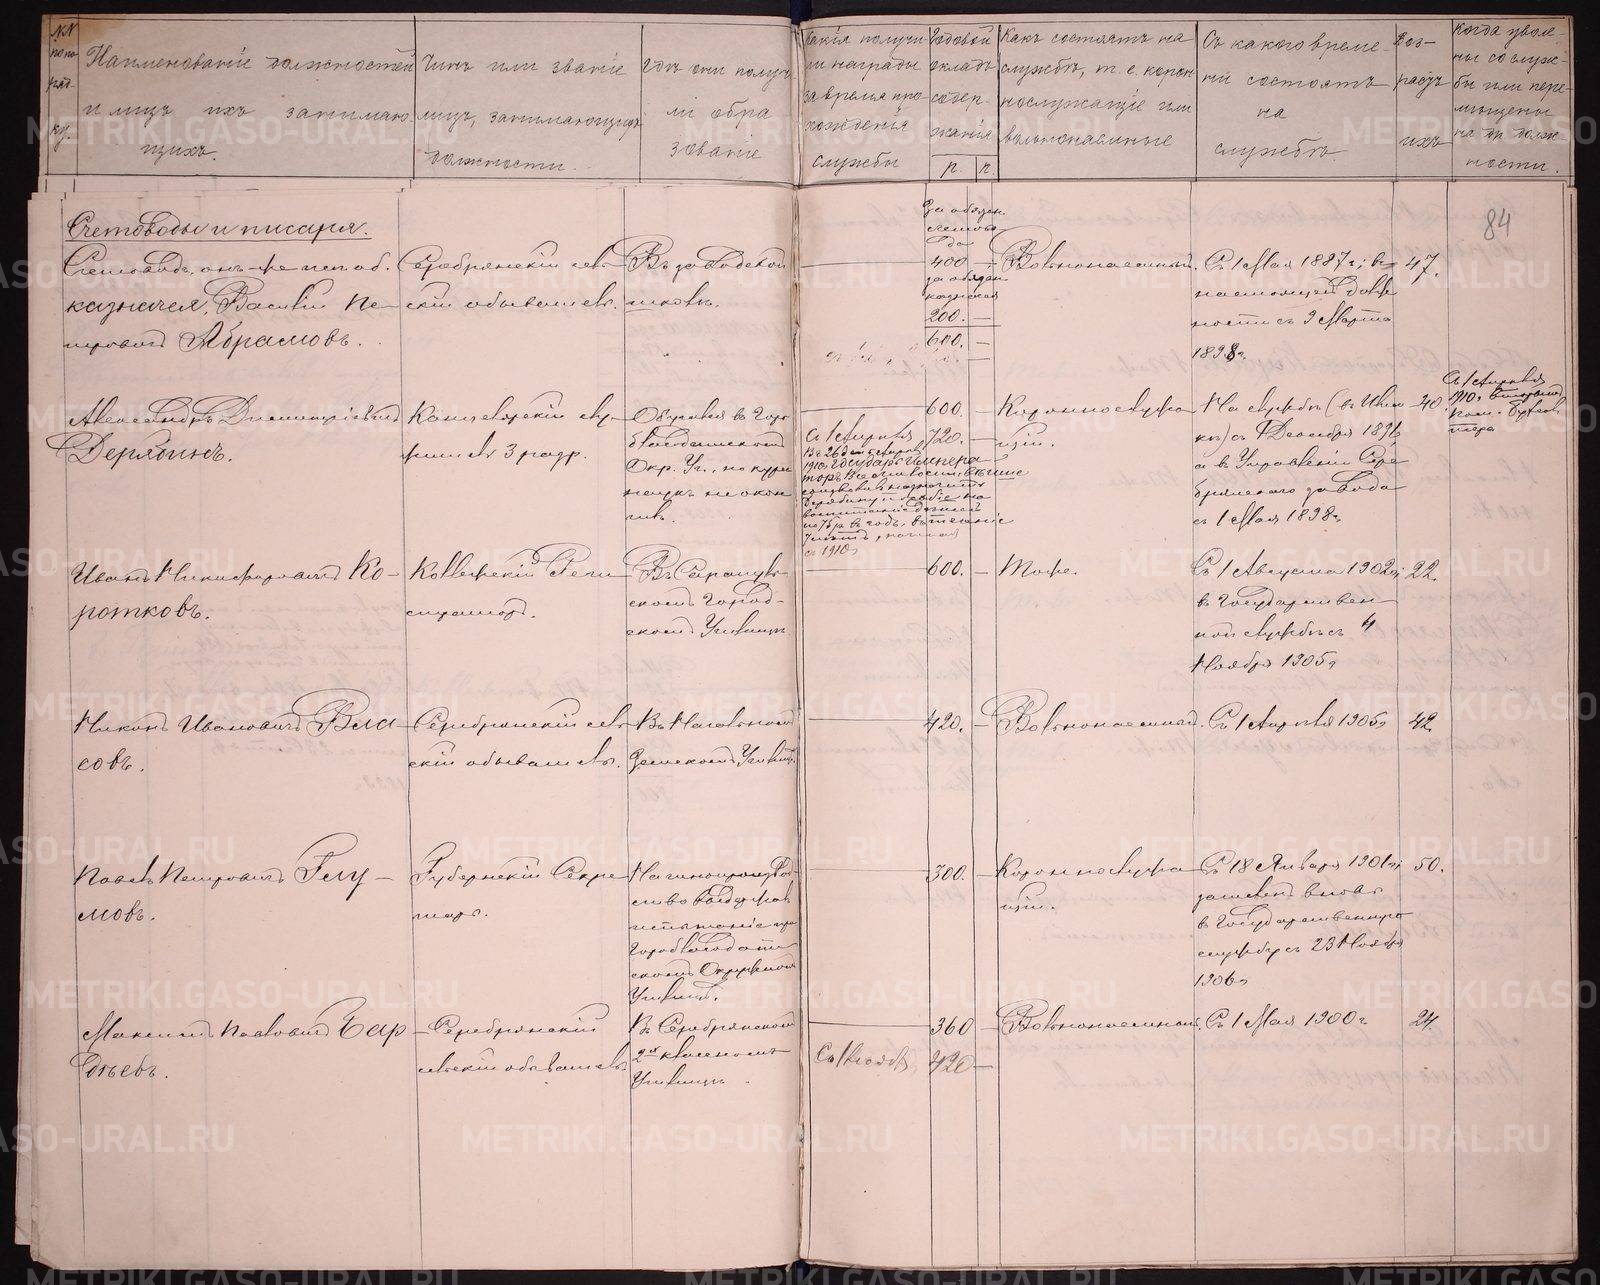 NN по по ряд- ку.
Наименованіе должностей
и лицъ ихъ занимаю
щихъ.
Чинъ или званіе
лицъ, занимающихъ
должности.
Гдѣ они получ
ли обра
зованіе
Какія получи
ли награды
за время про
хожденія
службы
Годовой
окладъ
содер-
жанія
р. к.
Какъ состоятъ на
службѣ, т. е. корон
нослужащіе или
вольнонаемные
Съ какого време-
ни состоятъ
на
службѣ.
Воз-
растъ
ихъ
Когда уволе-
ны со служ-
бы или пере-
мѣщены
на др. долж-
ности.
84
Счетоводы и писаря.
Счетоводъ, онъ-же исп. об.
казначея, Василій Пе-
тровичъ Абрамовъ.
Серебрянскій сель-
скій обыватель.
Въ заводской
школѣ.
За обязан.
счетово-
да
400 —
за обязан
казначея
200. —
600. —
Вольнонаемный.
Съ 1 Мая 1887 г.; въ
настоящей долж
ности съ 9 Марта
1898 г.
47.
Александръ Димитріевичъ
Дерябинъ.
Канцелярскій слу-
житель 3 разр.
Обучался въ Горо
благодатскомъ
Окр. Уч., но курса
наукъ не окон
чилъ.
600. —
Съ 1 Апрѣля 720. —
Въ 26 день Апрѣля
1910 г. Государь Импера-
торъ Всемилостивѣйше
соизволилъ назначить
Дерябину пособіе на
воспитаніе дѣтей
по 75 р. въ годъ, въ теченіе
лѣтъ, начиная
съ 1910 г.
Короннослужа
щій.
На службѣ (въ
съ 1 Декабря 1896
а въ Управленіи Сере
брянскаго завода
съ 1 Мая 1898 г.
40
Съ 1 Апрѣля
1910 г.
пом. бухгал
тера
Иванъ Никифоровичъ Ко-
ротковъ.
Коллежскій Реги-
страторъ.
Въ Сарапуль-
скомъ Город-
скомъ Училищѣ
600. —
Тоже.
Съ 1 Августа 1902 г.;
въ Государствен-
ной службѣ съ 4
Ноября 1905 г.
22.
Никонъ Ивановичъ Вла-
совъ.
Серебрянскій сель-
скій обыватель.
Въ Начальномъ
Земскомъ Училищ.
420. —
Вольнонаемный.
Съ 1 Апрѣля 1905 г.
42.
Павелъ Петровичъ Глу-
мовъ.
Губернскій Секре-
тарь.
На чинопроизвод-
ство выдержалъ
испытаніе при
Гороблагодат-
скомъ Окружномъ
Училищ.
300. —
Короннослужа
щій.
Съ 18 Января 1901 г.;
зачисленъ вновь
въ Государственную
службу съ 23 Ноября
1906 г.
50.
Максимъ Павловичъ Чар
Серебрянскій
сельскій обыватель
Въ Серебрянскомъ
2хъ классномъ
Училищѣ.
360 —
420 —
Вольнонаемный.
Съ 1 Мая 1900 г.
24.
METRIKI.GASO-URAL.RU